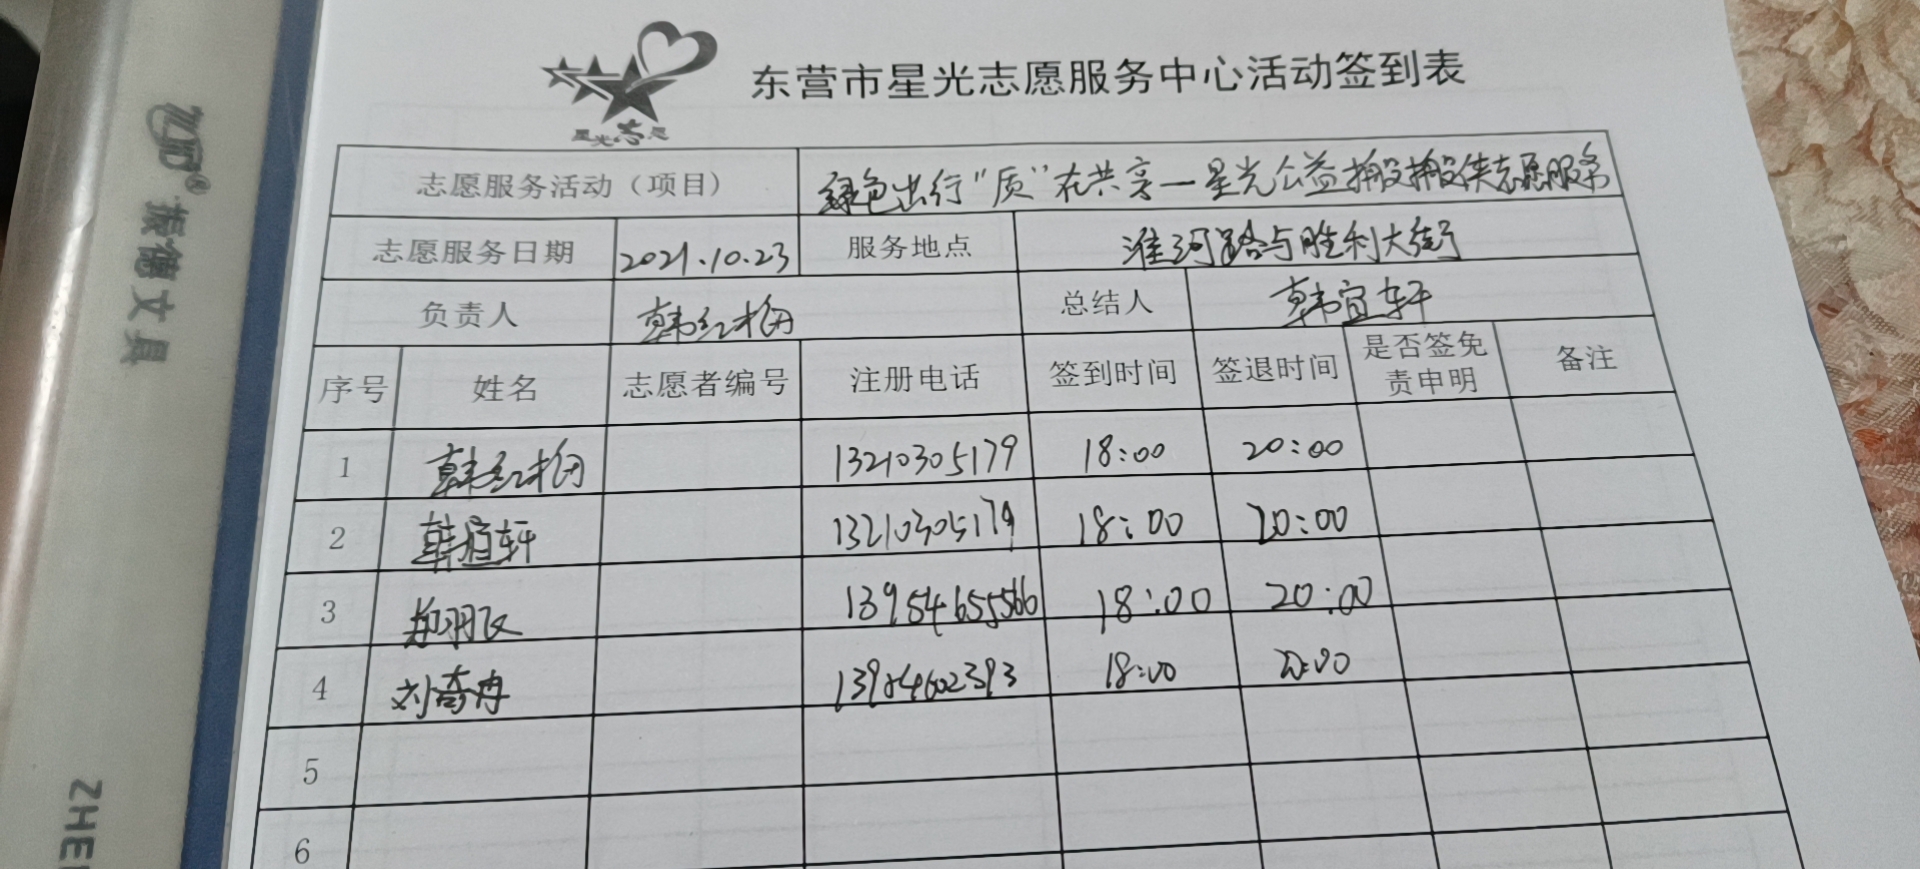 星光志愿
东营市星光志愿服务中心活动签到表
志愿服务活动（项目） 绿色出行“质”在共享—星光公益搬搬侠志愿服务
志愿服务日期 2021.10.23 服务地点 淮河路与胜利大街
负责人 韩红梅 总结人 韩宜轩
序号 姓名 志愿者编号 注册电话 签到时间 签退时间 是否签免责申明 备注
1 韩红梅 13210305179 18:00 20:00
2 韩宜轩 13210305179 18:00 20:00
3 13954655566 18:00 20:00
4 18:00 20:00
5
6
振德文具
ZHE